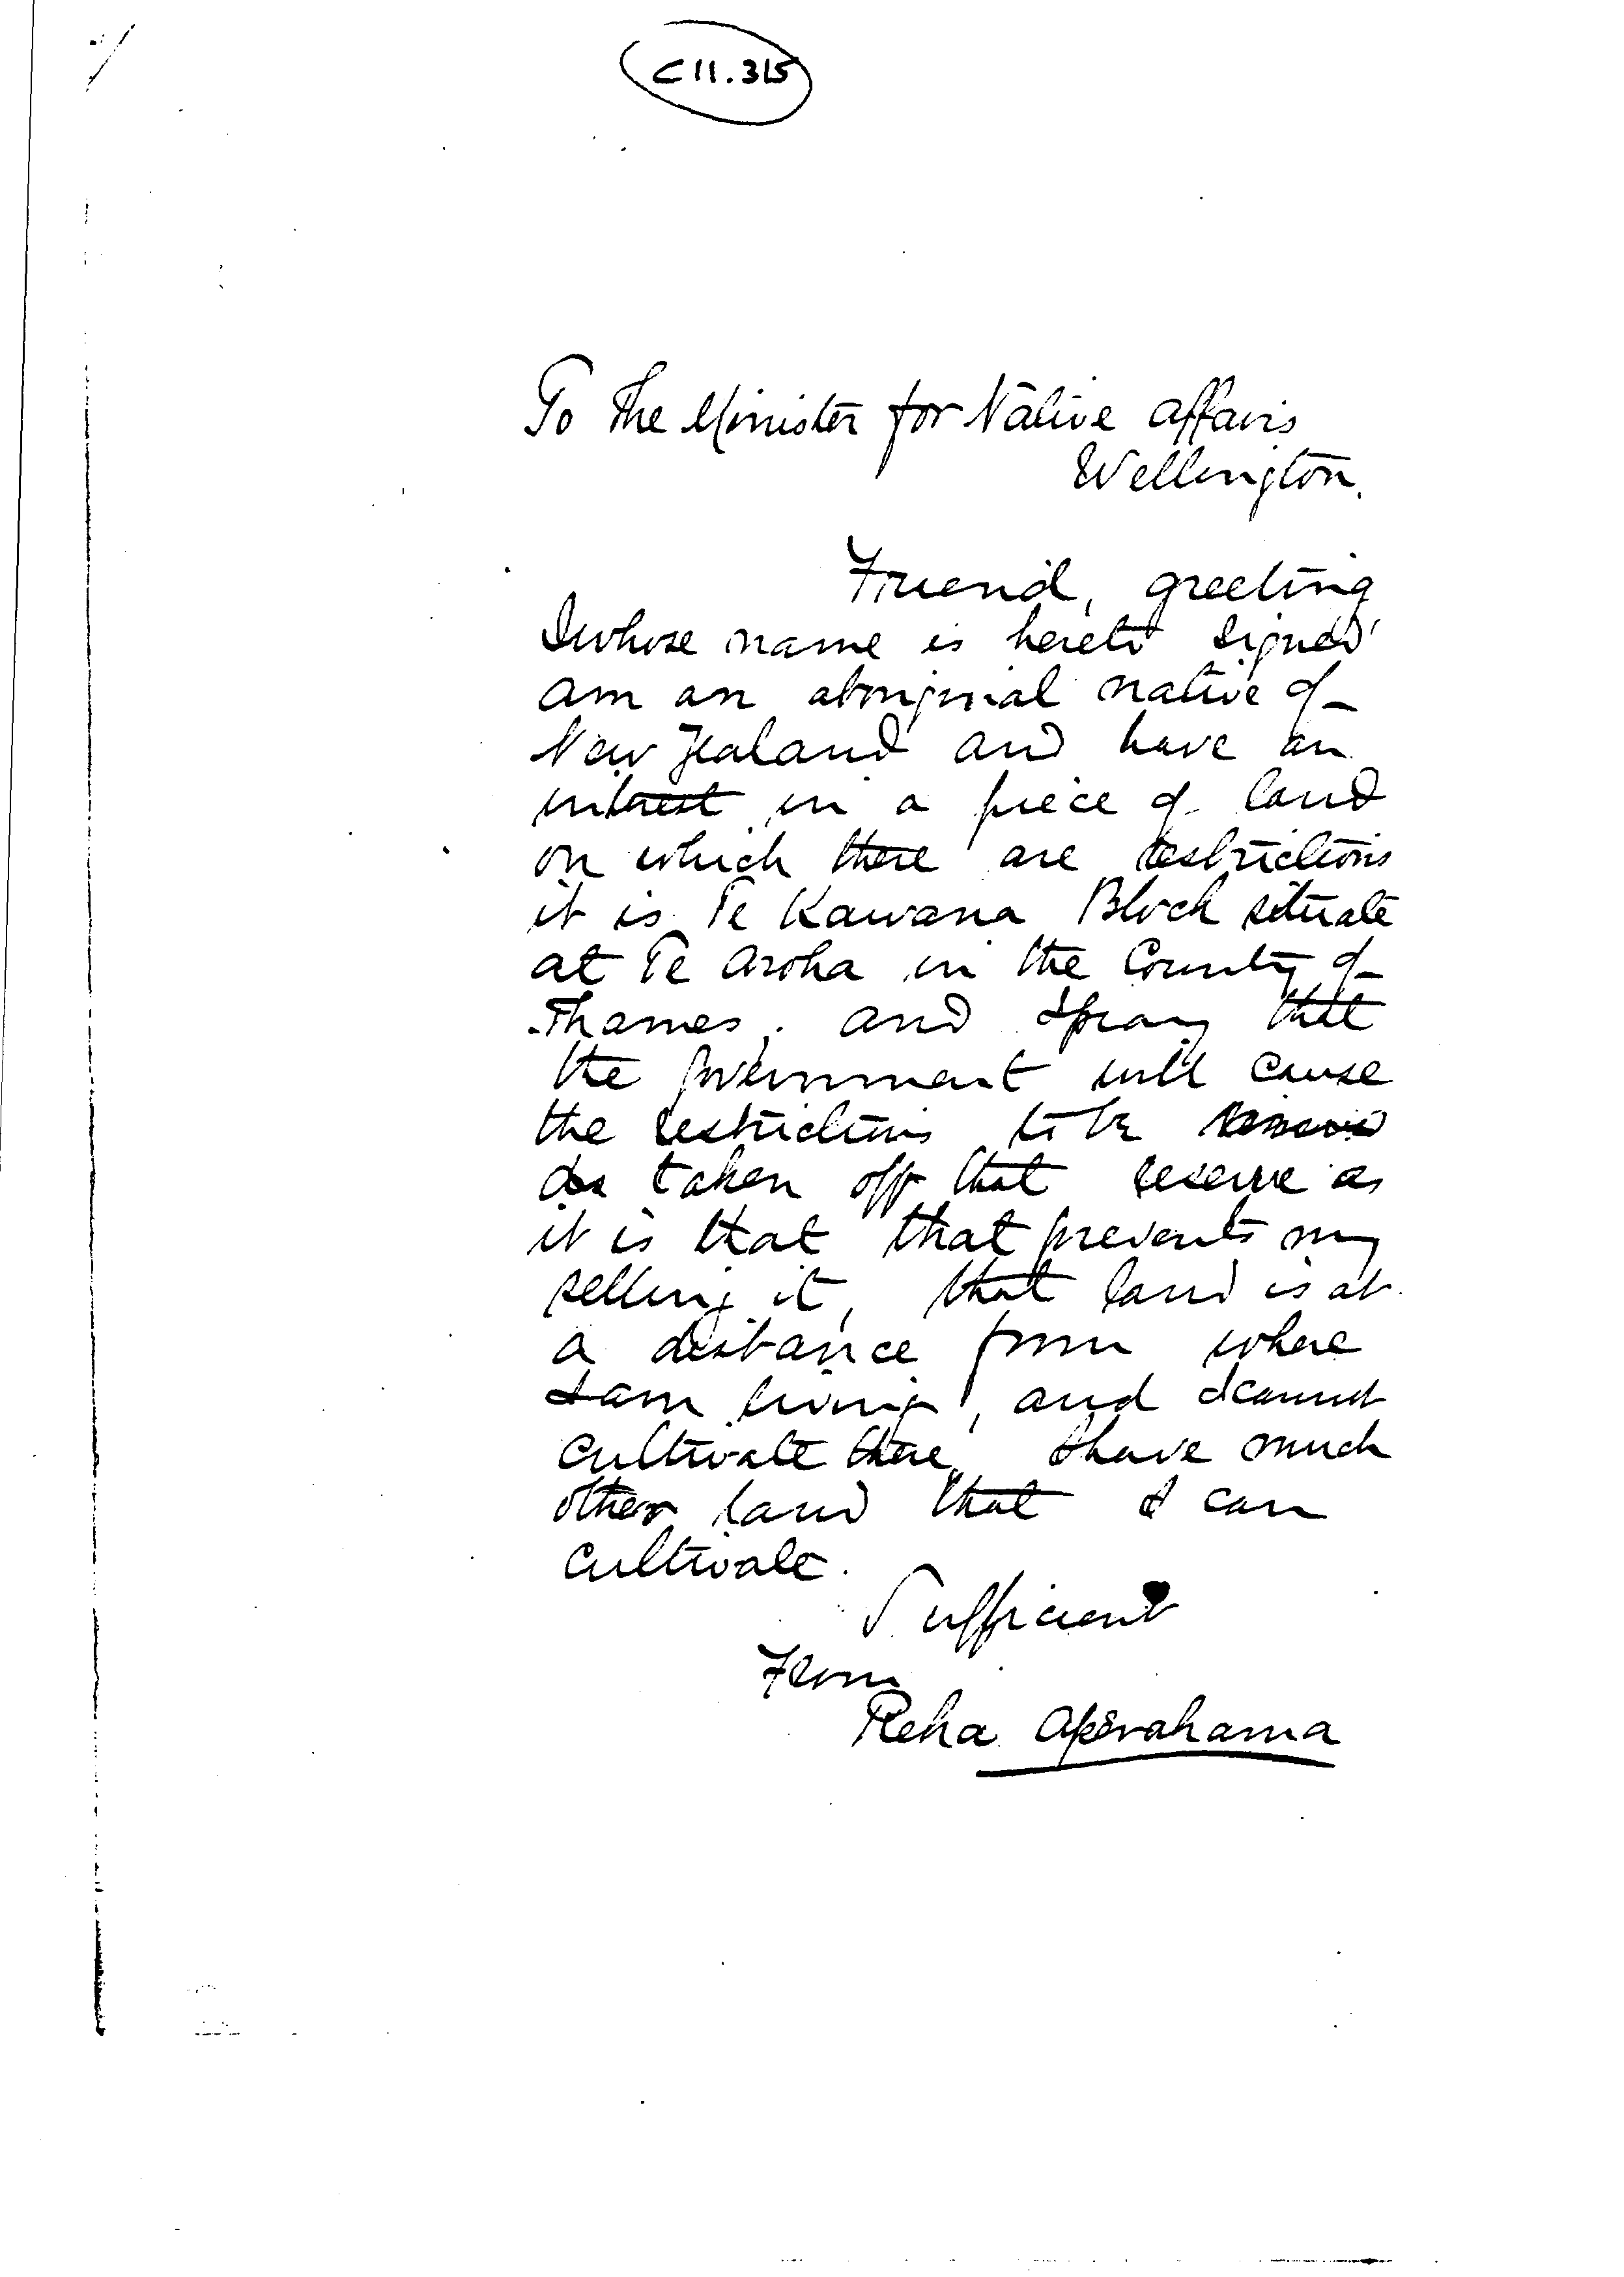 C11.315
To The Minister for Native affairs
Wellington.
Friend, greeting
I whose name is hereto signed
am an aboriginal native of
New Zealand and have an
interest in a piece of land
on which there are restrictions
it is Te Kawana Block situate
at Te Aroha in the County of
Thames. and I pray that
the government will cause
the restrictions to be
taken off that reserve as
it is that that prevents my
selling it, that land is at
a distance from where
I am living, and I cannot
cultivate there, I have much
other land that I can
cultivate.
Sufficient
From
Reha Aperahama